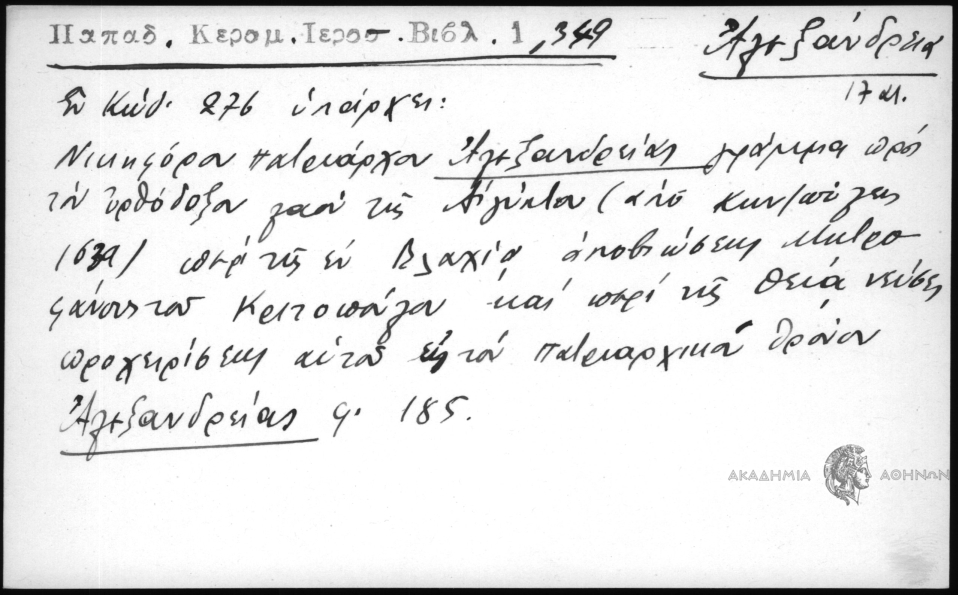 Παπαδ. Κεραμ. Ιεροσ. Βιβλ. 1, 349
Ἀλεξάνδρεια
17 αι.
Ἐν Κώδ. 276 ὑπάρχει:
Νικηφόρου πατριάρχου Ἀλεξανδρείας γράμμα πρὸς
τὸν ὀρθόδοξον λαὸν τῆς Αἰγύπτου (ἀπὸ Κων/πόλεως
1639) περὶ τῆς ἐν Βλαχίᾳ ἀποβιώσεως Μητρο
φάνους τοῦ Κριτοπούλου καὶ περὶ τῆς θείᾳ νεύσει
προχειρίσεως αὐτοῦ εἰς τὸν πατριαρχικὸν θρόνον
Ἀλεξανδρείας φ. 185.
ΑΚΑΔΗΜΙΑ ΑΘΗΝΩΝ